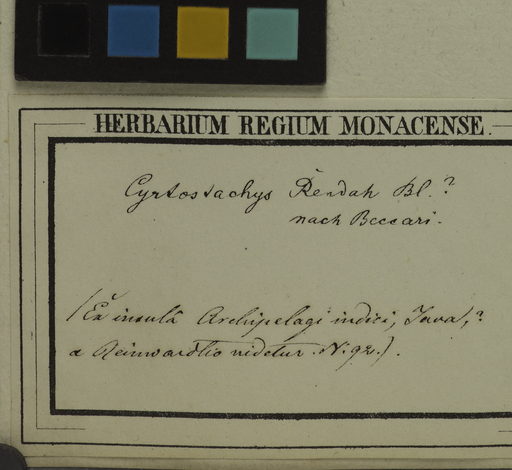 HERBARIUM REGIUM MONACENSE.
Cyrtostachys Rendah Bl.?
nach Beccari.
(Ex insulâ Archipelagi indici, Java,?
a Reinwardtio videtur. N. 92.).